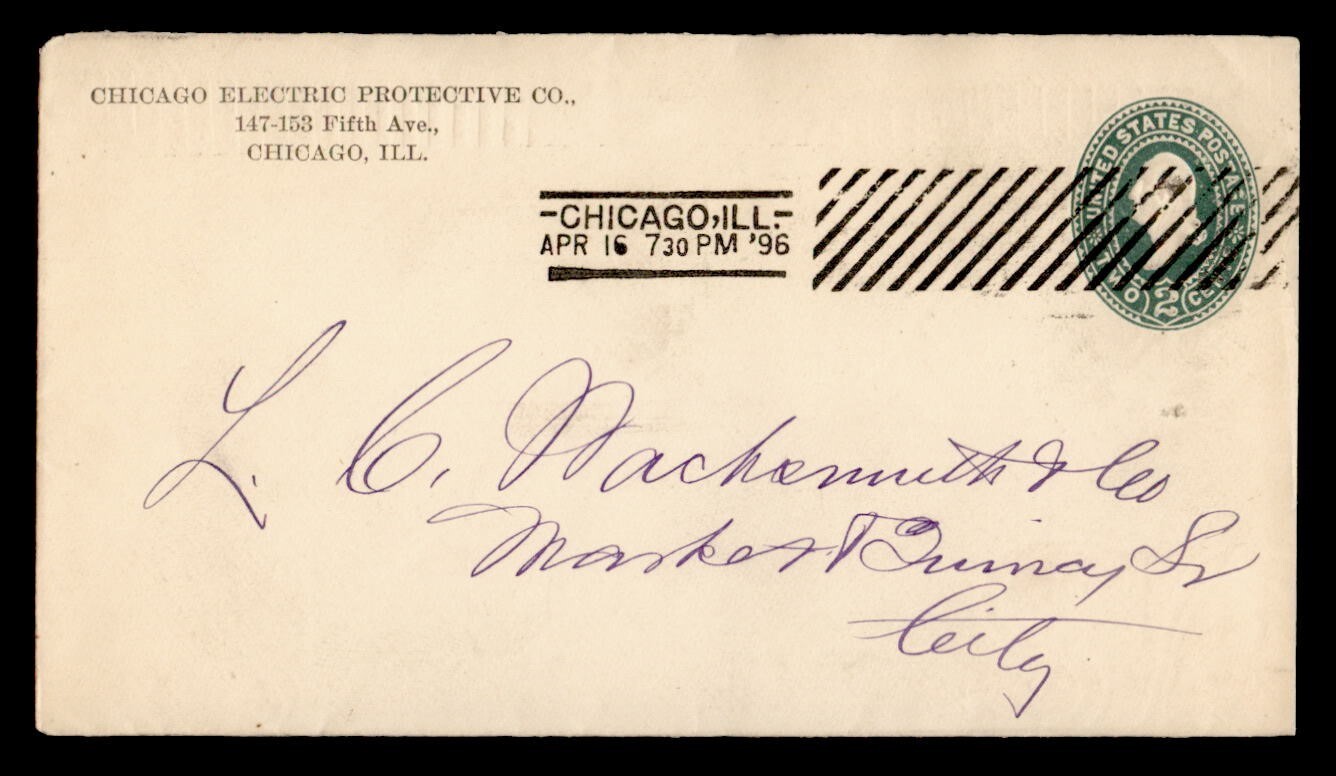 CHICAGO ELECTRIC PROTECTIVE CO.,
147-153 Fifth Ave.,
CHICAGO, ILL.
UNITED STATES POSTAGE
TWO 2 CENTS
-CHICAGO, ILL.-
APR 16 730 PM '96
L. C. Wachsmuth & Co
Market & Quincy St
City